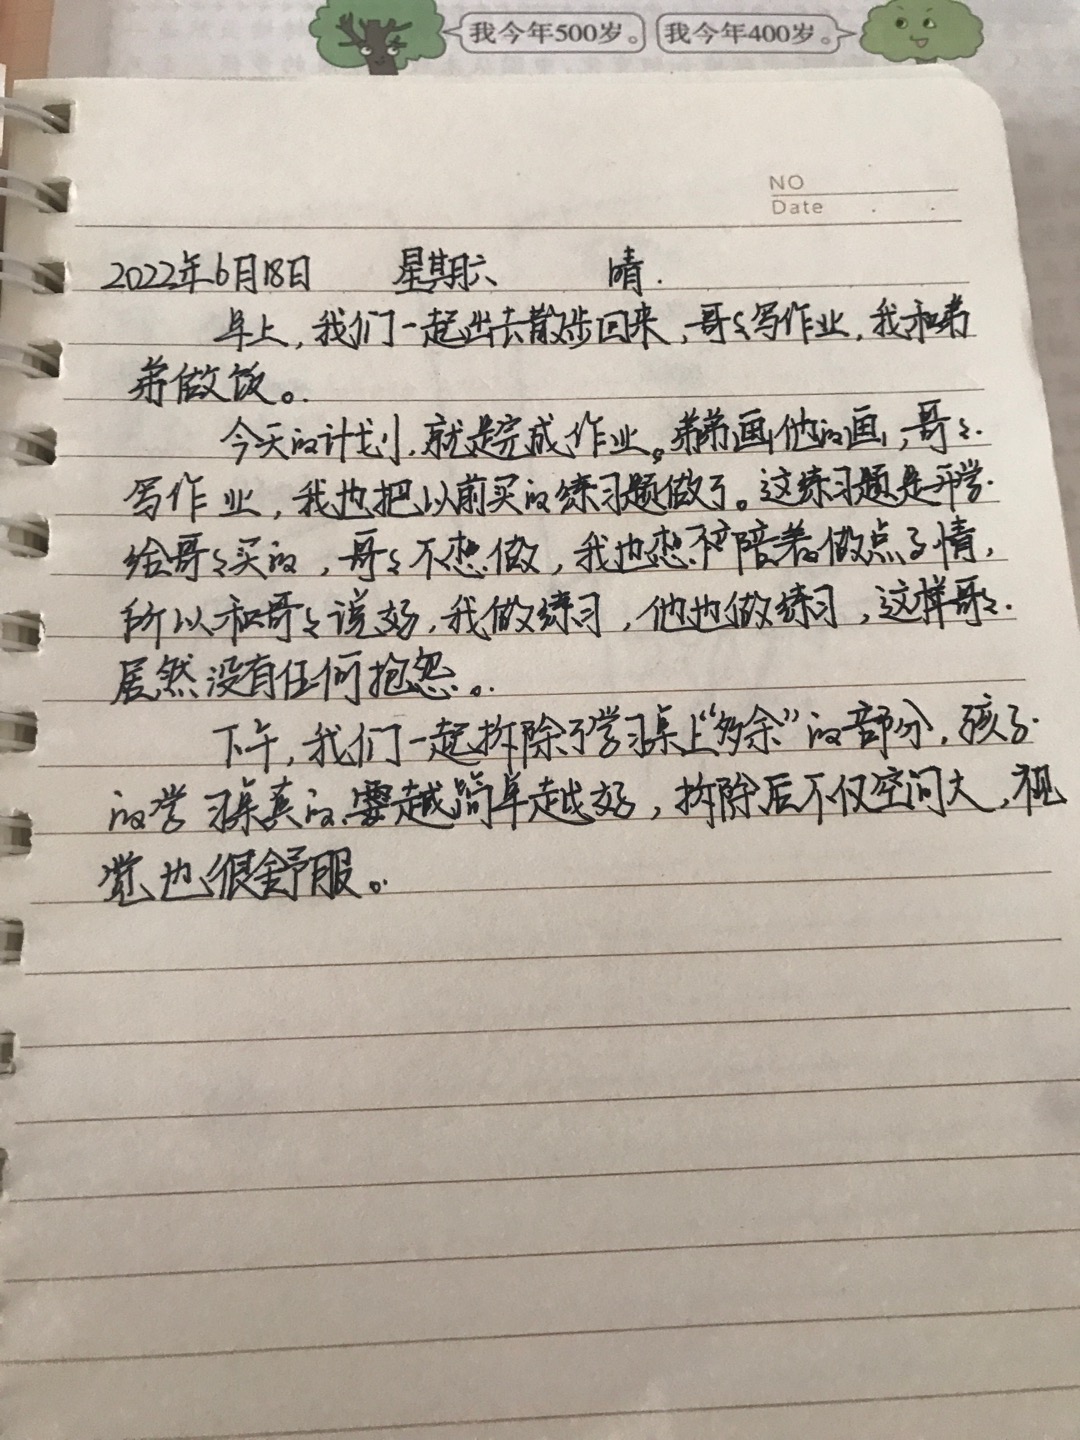 我今年500岁。 我今年400岁。
NO
Date
2022年6月18日 星期六 晴.
早上,我们一起出去散步回来,哥々写作业,我和弟
弟做饭。
今天的计划,就是完成作业。弟弟画他的画,哥々
写作业,我也把以前买的练习题做了。这练习题是开学
给哥々买的,哥々不想做,我也想陪着做点事情,
所以和哥々说好,我做练习,他也做练习,这样哥々
居然没有任何抱怨。
下午,我们一起拆除了学习桌上“多余”的部分,孩子
的学习桌真的要越简单越好,拆除后不仅空间大,视
觉也很舒服。